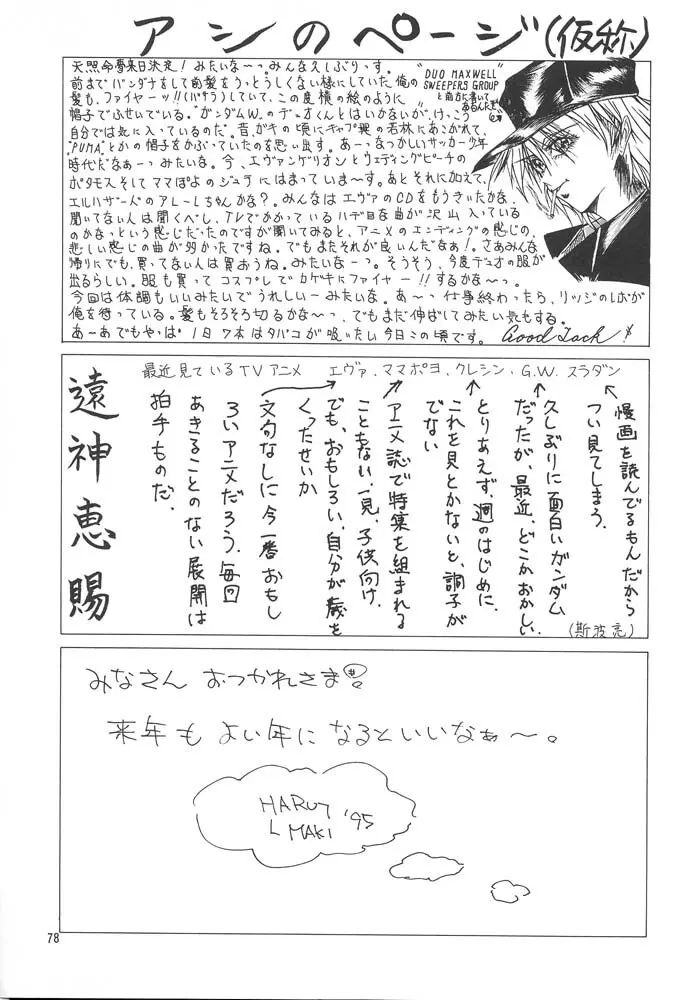 アシのページ(仮称)
天照命夢来日決定！みたいな〜っ。みんなえしぶりっす。
前までバンダナをして前髪をうっとうしくない様にしていた俺の
髪も、ファイヤーッ!!(バサラ)していて、この度横の絵のように
帽子でふせいでいる。"ガンダムW"のデュオくんとはいかないが、けっこう
自分では気に入っているのだ。昔、ガキの頃にキャプ翼の若林にあこがれて、
"PUMA"とかの帽子をかぶっていたのを思い出す。あーなつかしいサッカー少年
時代だなぁーっみたいな。今、エヴァンゲリオンとウェディングピーチの
ポタモスそしてママぽよのジュテにはまっていま〜す。あとそれに加えて、
エルハザードのアレーしちゃんかな？。みんなはエヴァのCDをもうきいたかな、
聞いてない人は聞くべし、TVでかかっているハデ目な曲が沢山入っている
のかなっという感じだったのですが聞いてみると、アニメのエンディングの感じの、
悲しい感じの曲が多かったですね。でもまたそれが良いんだなぁ！。さあみんな
帰りにでも、買ってない人は買おうね。みたいなーっ。そうそう、今度デュオの服が
出るらしい。服も買って コスプレでカゲキにファイヤー!!するかな〜っ。
今回は体調もいいみたいでうれしいーみたいな。あ〜っ仕事終わったら、リッジのレボが
俺を待っている。髪もそろそろ切るかな〜っ、でもまだ伸ばしてみたい気もする。
あーあでもやっぱ 1日7本はタバコが吸いたい今日この頃です。Good Luck!
"DUO MAXWELL"
SWEEPERS GROUP
と両方に書いて
あるんだぞ
遠神恵賜
最近見ているTVアニメ エヴァ、ママポヨ、クレシン、G.W. スラダン
漫画を読んでるもんだから
つい見てしまう。
久しぶりに面白いガンダム
だったが、最近、どこかおかしい
とりあえず、週のはじめに、
これを見とかないと、調子が
でない
アニメ誌で特集を組まれる
こともない、一見、子供向け、
でも、おもしろい、自分が歳を
くったせいか
文句なしに今一番おもし
ろいアニメだろう、毎回
あきることのない展開は
拍手ものだ。
(斯波亮)
みなさん おつかれさま!
来年も よい年に なるといいなぁ〜。
HARU
L MAKI '95
78